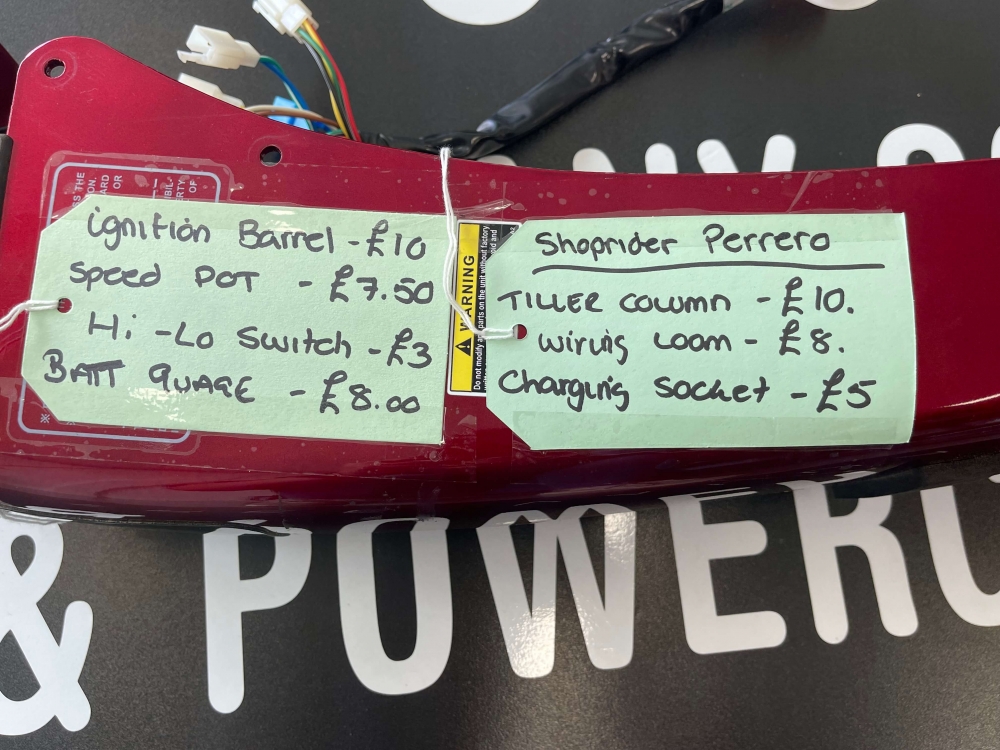 ignition Barrel - £10
Speed POT - £7.50
Hi - Lo Switch - £3
BATT GUAGE - £8.00
Shoprider Perrero
TILLER COLUMN - £10.
wiring Loom - £8.
Charging Socket - £5
WARNING
Do not modify
parts on the unit without factory
& POWER